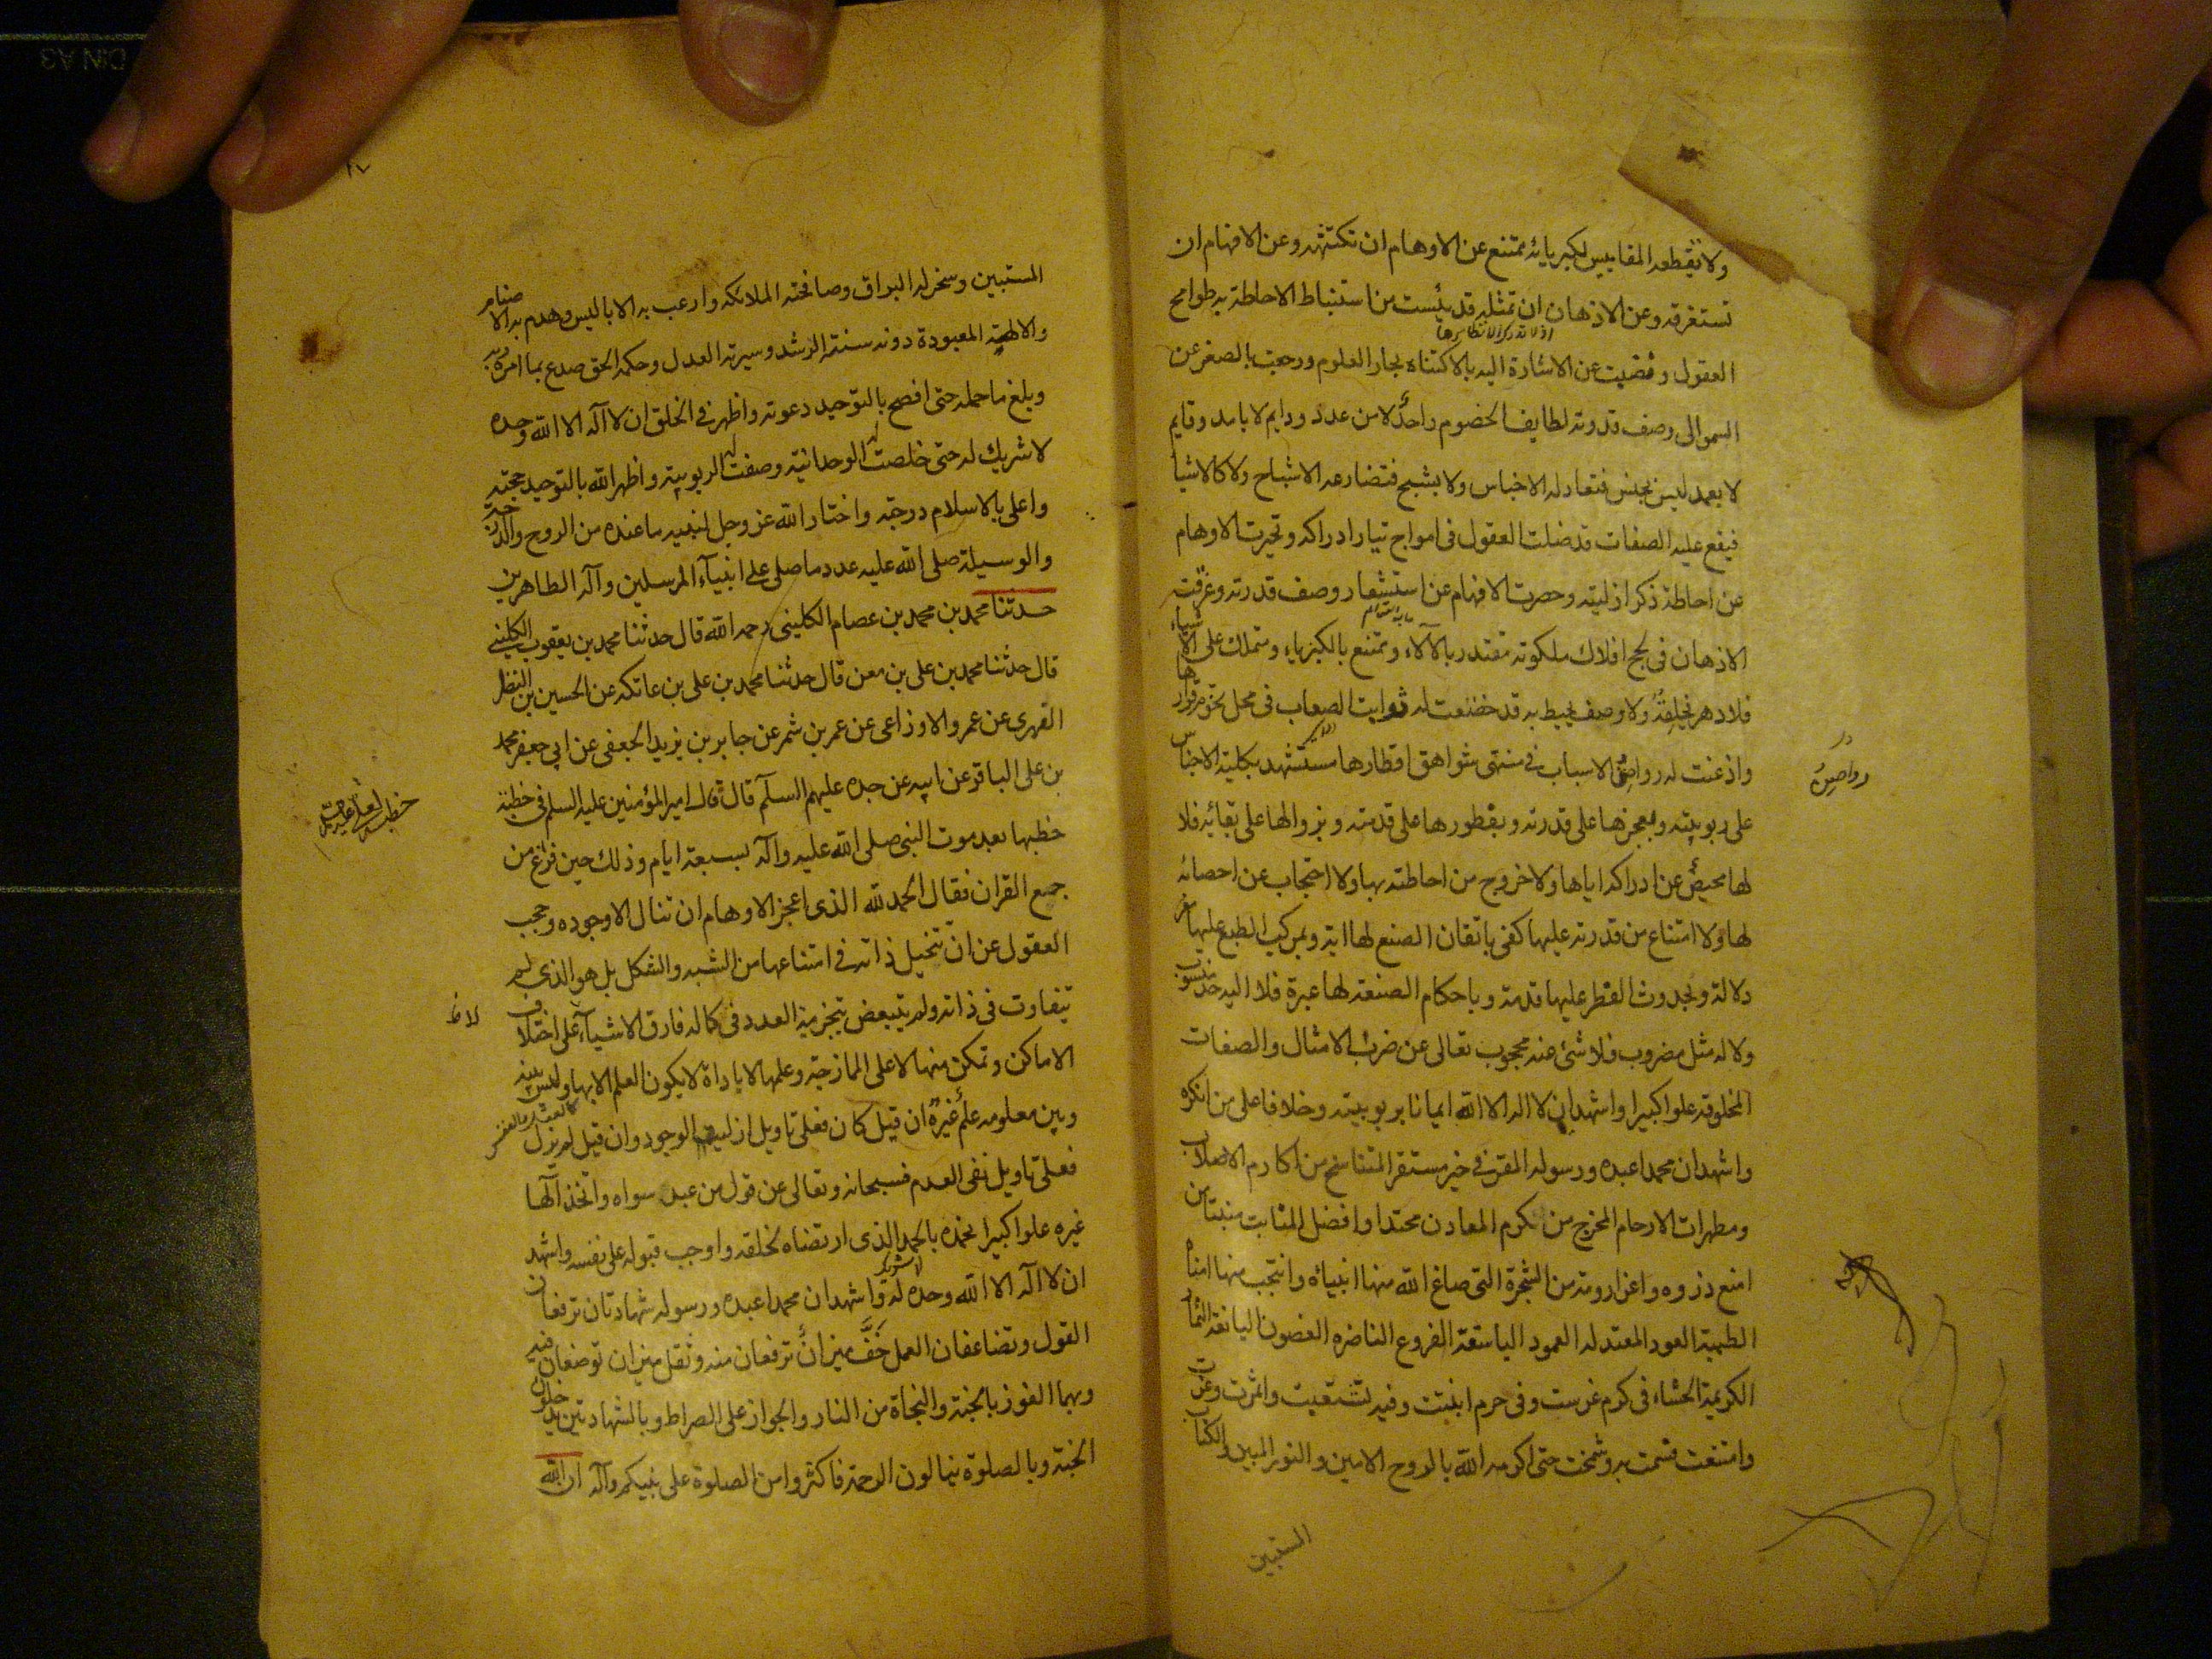 ولا تقطعه المقاييس لكبريائه ممتنع عن الاوهام ان تكتنهه وعن الافهام ان
تستغرقه وعن الاذهان ان تمثله قد يئست من استنباط الاحاطة به طوامح
العقول ونضبت عن الاشارة اليه بالاكتناه بحار العلوم ورجعت بالصغر عن
السمو الى وصف قدرته لطايف الخصوم واحد لا من عدد ودايم لا بامد وقايم
لا بعمد ليس بجنس فتعادله الاجناس ولا بشبح فتضارعه الاشباح ولا كالاشيا
فيقع عليه الصفات قد ضلت العقول فى امواج تيار ادراكه وتحيرت الاوهام
عن احاطة ذكر ازليته وحصرت الافهام عن استشعار وصف قدرته وغرقت
الاذهان فى لجج افلاك ملكوته مقتدر بالآلاء وممتنع بالكبرياء ومتملك على الاشياء
فلا دهر يخلقه ولا وصف يحيط به قد خضعت له ثوابت الصعاب فى محل تخوم قرارها
واذعنت له رواصن الاسباب فى منتهى شواهق اقطارها مستشهد بكلية الاجناس
على ربوبيته وبعجزها على قدرته وبفطورها على قدمته وبزوالها على بقائه فلا
لها محيص عن ادراكه اياها ولا خروج من احاطته بها ولا احتجاب عن احصائه
لها ولا امتناع من قدرته عليها كفى باتقان الصنع لها اية وبمركب الطبع عليها
دلالة وبحدوث الفطر عليها قدمة وباحكام الصنعة لها عبرة فلا اليه حد منسوب
ولا له مثل مضروب فلا شئ عنه محجوب تعالى عن ضرب الامثال والصفات
المخلوقة علوا كبيرا واشهد ان لا اله الا الله ايمانا بربوبيته وخلافا على من انكره
واشهد ان محمدا عبده ورسوله المقر فى خير مستقر المتناسخ من اكارم الاصلاب
ومطهرات الارحام المخرج من اكرم المعادن محتدا وافضل المنابت منبتا من
امنع ذروه واعز ارومة من الشجرة التى صاغ الله منها انبياه وانتجب منها امناه
الطيبة العود المعتدله العمود الباسقة الفروع الناضره الغصون اليانعة الثمار
الكريمة الحشاء فى كرم غرست وفى حرم انبتت وفيه تشعبت واثمرت وعزت
وامتنعت فسمت به وشمخت حتى اكرمه الله بالروح الامين والنور المبين والكتاب
المستبين
رواصن
المستبين وسخر له البراق وصافحته الملائكه وارعب به الاباليس وهدم به الاصنام
والالهة المعبودة دونه سنته الرشد وسيرته العدل وحكمه الحق صدع بما امره ربه
وبلغ ما حمله حتى افصح بالتوحيد دعوته واظهر فى الخلق ان لا آله الا الله وحده
لا شريك له حتى خلصت له الوحدانية وصفت له الربوبية واظهر الله بالتوحيد حجته
واعلى بالاسلام درجته واختار الله عز وجل لنبيه ما عنده من الروح والدرجة
والوسيلة صلى الله عليه عدد ما صلى على انبيآء المرسلين وآله الطاهرين
حدثنا محمد بن محمد بن عصام الكلينى رحمه الله قال حدثنا محمد بن يعقوب الكلينى
قال حدثنا محمد بن على بن معن قال حدثنا محمد بن على بن عاتكه عن الحسين بن النضر
الفهرى عن عمرو الاوزاعى عن عمر بن شمر عن جابر بن يزيد الجعفى عن ابي جعفر محمد
بن على الباقر عن ابيه عن جده عليهم السلام قال قال امير المؤمنين عليه السلم فى خطبة
خطبها بعد موت النبى صلى الله عليه وآله بسبعة ايام وذلك حين فرغ من
جمع القران فقال الحمد لله الذى اعجز الاوهام ان تنال الا وجوده وحجب
العقول عن ان تتخيل ذاته فى امتناعها من الشبه والشكل بل هو الذى لم
يتفاوت فى ذاته ولم يتبعض بتجزية العدد فى كماله فارق الاشيآء لا على اختلاف
الاماكن وتمكن منها لا على الممازجة وعلمها لا باداة لا يكون العلم الا بها وليس بينه
وبين معلومه علم غيره ان قيل كان فعلى تاويل ازلية الوجود وان قيل لم يزل
فعلى تاويل نفى العدم فسبحانه وتعالى عن قول من عبد سواه واتخذ آلها
غيره علوا كبيرا نحمده بالحمد الذى ارتضاه لخلقه واوجب قبوله على نفسه واشهد
ان لا آله الا الله وحده لا شريك له واشهد ان محمدا عبده ورسوله شهادتان ترفعان
القول وتضاعفان العمل خف ميزان ترفعان منه وثقل ميزان توضعان فيه
وبهما الفوز بالجنة والنجاة من النار والجواز على الصراط وبالشهادتين يدخلون
الجنة وبالصلوة ينالون الرحمة فاكثروا من الصلوة على نبيكم وآله ان الله